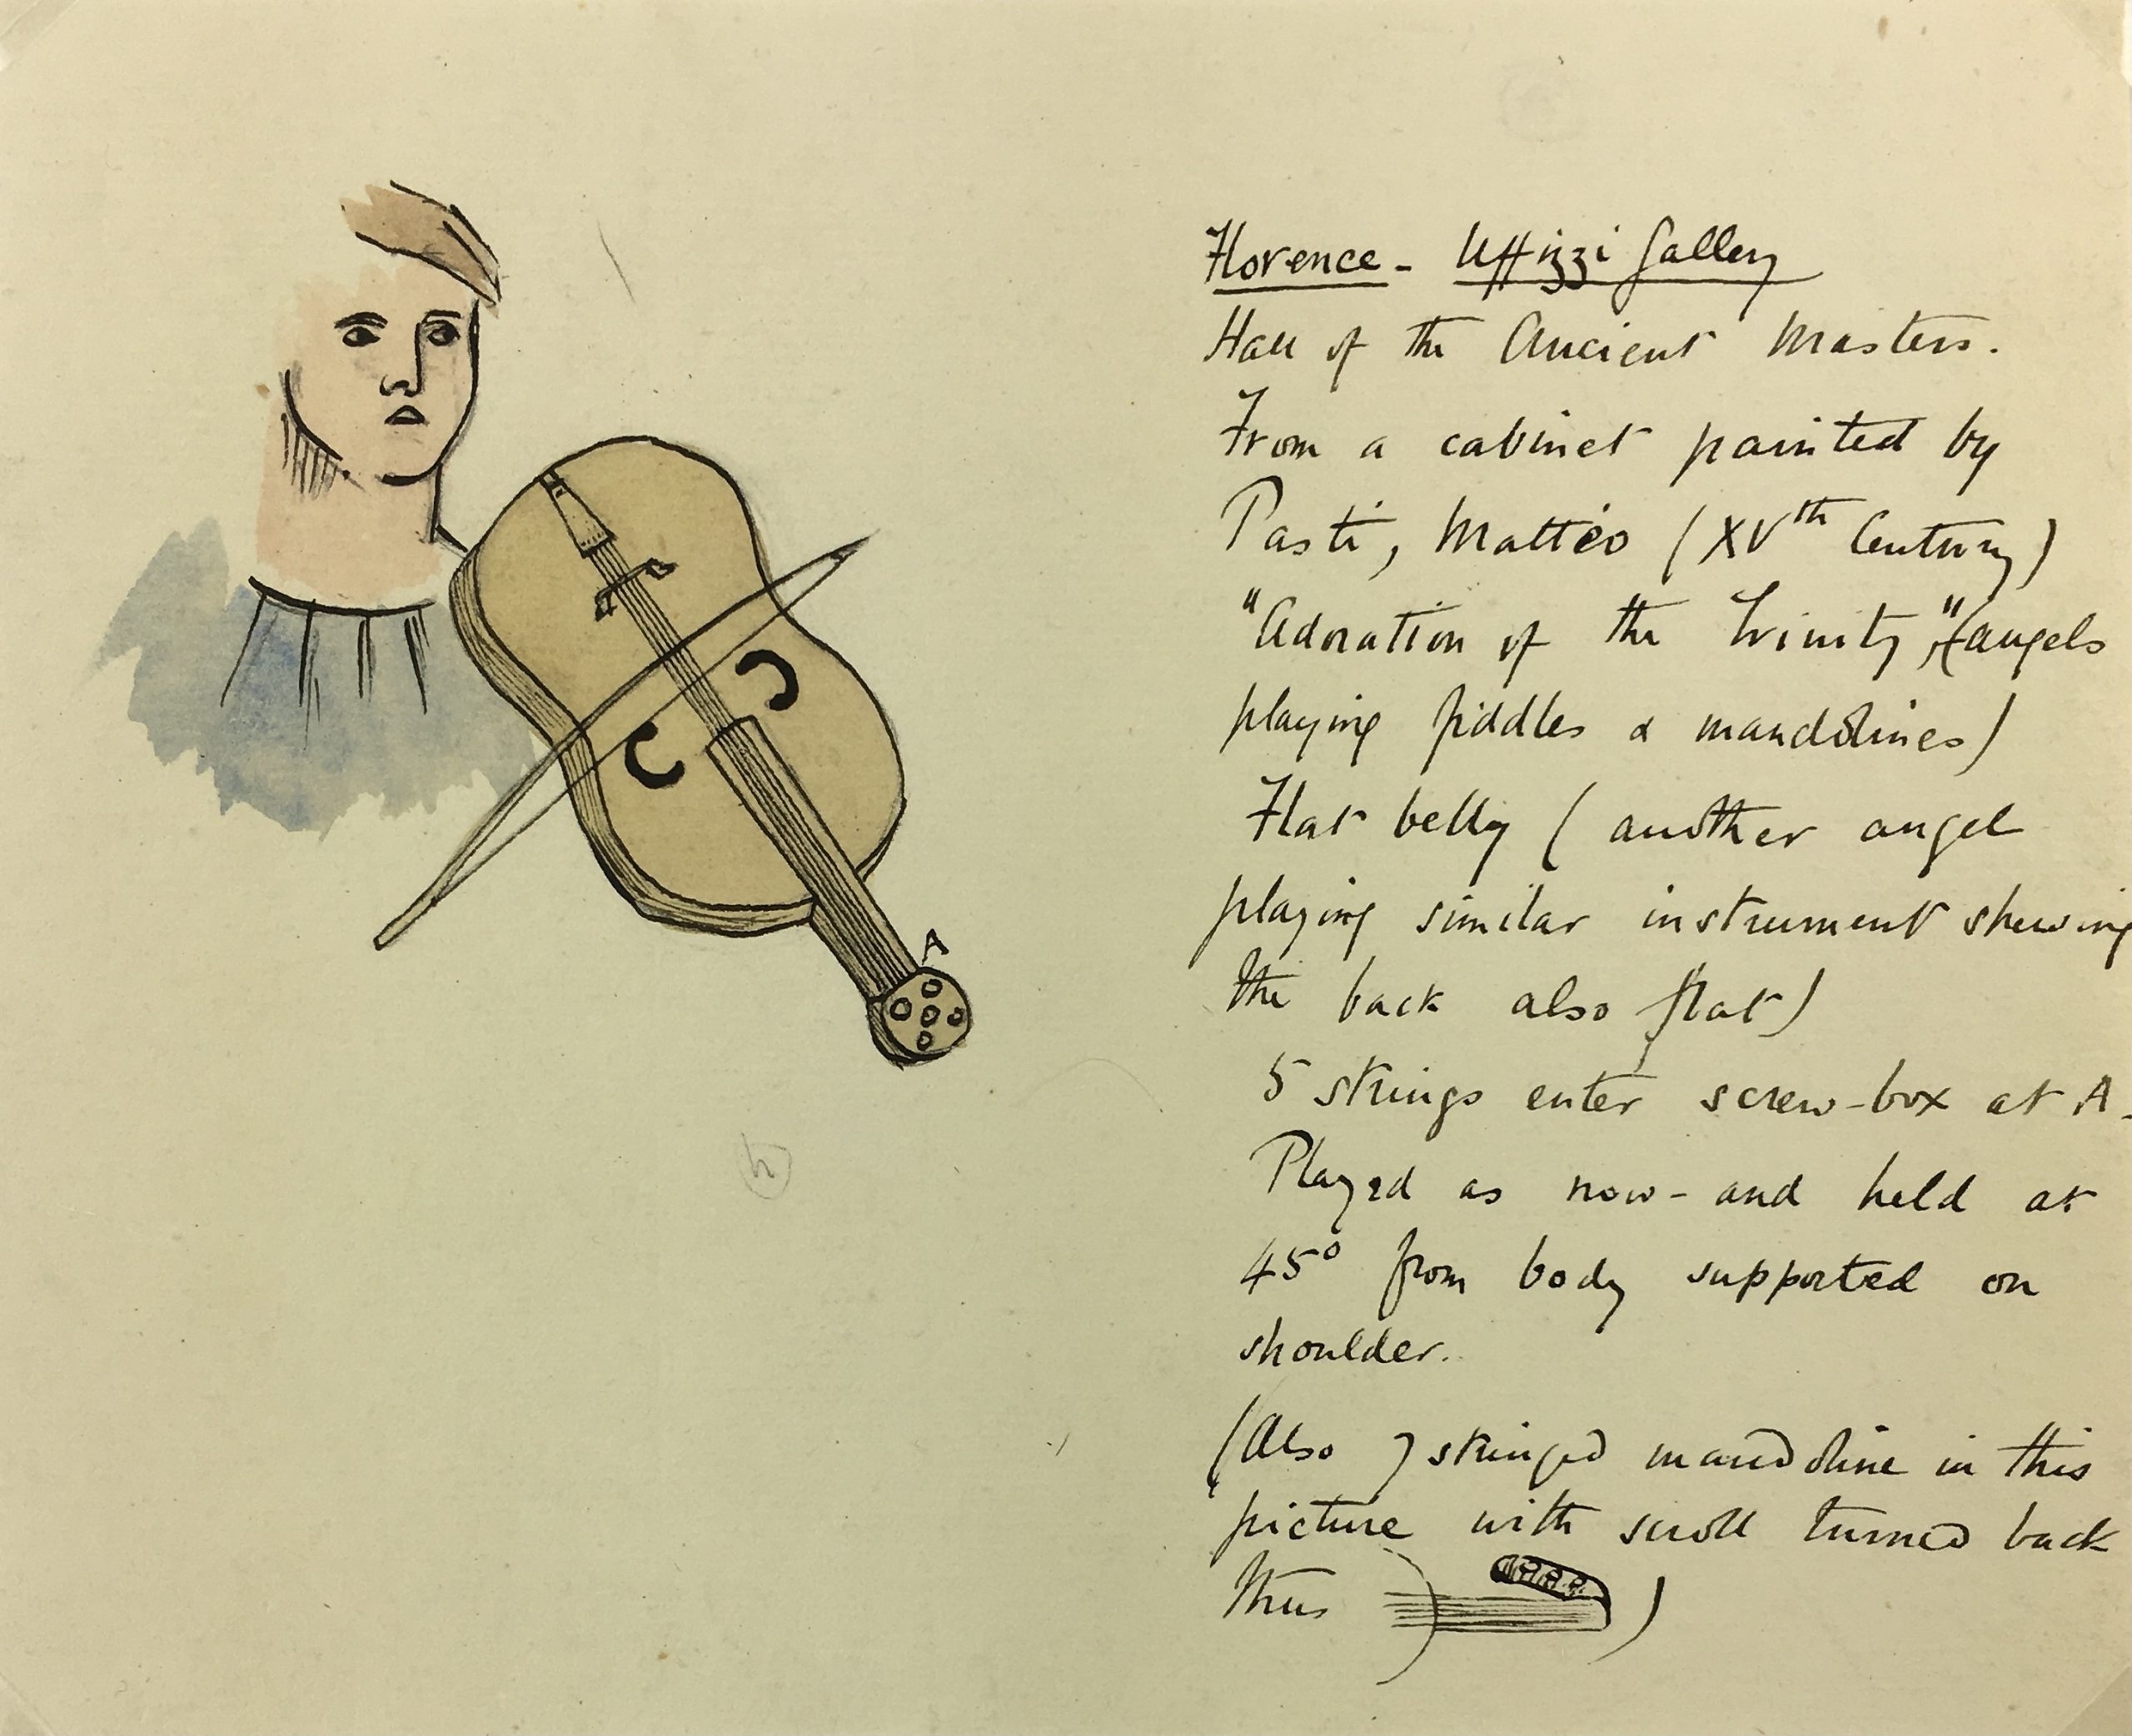 A
h
Florence - Uffizzi Gallery
Hall of the Ancient Masters.
From a cabinet painted by
Pasti, Matteo (XVth Century)
"Adoration of the Trinity", (angels
playing fiddles & mandolines)
Flat belly (another angel
playing similar instrument shewing
the back also flat)
5 strings enter screw-box at A.
Played as now - and held at
45° from body supported on
shoulder.
(Also 7 stringed mandoline in this
picture with scroll turned back
thus )